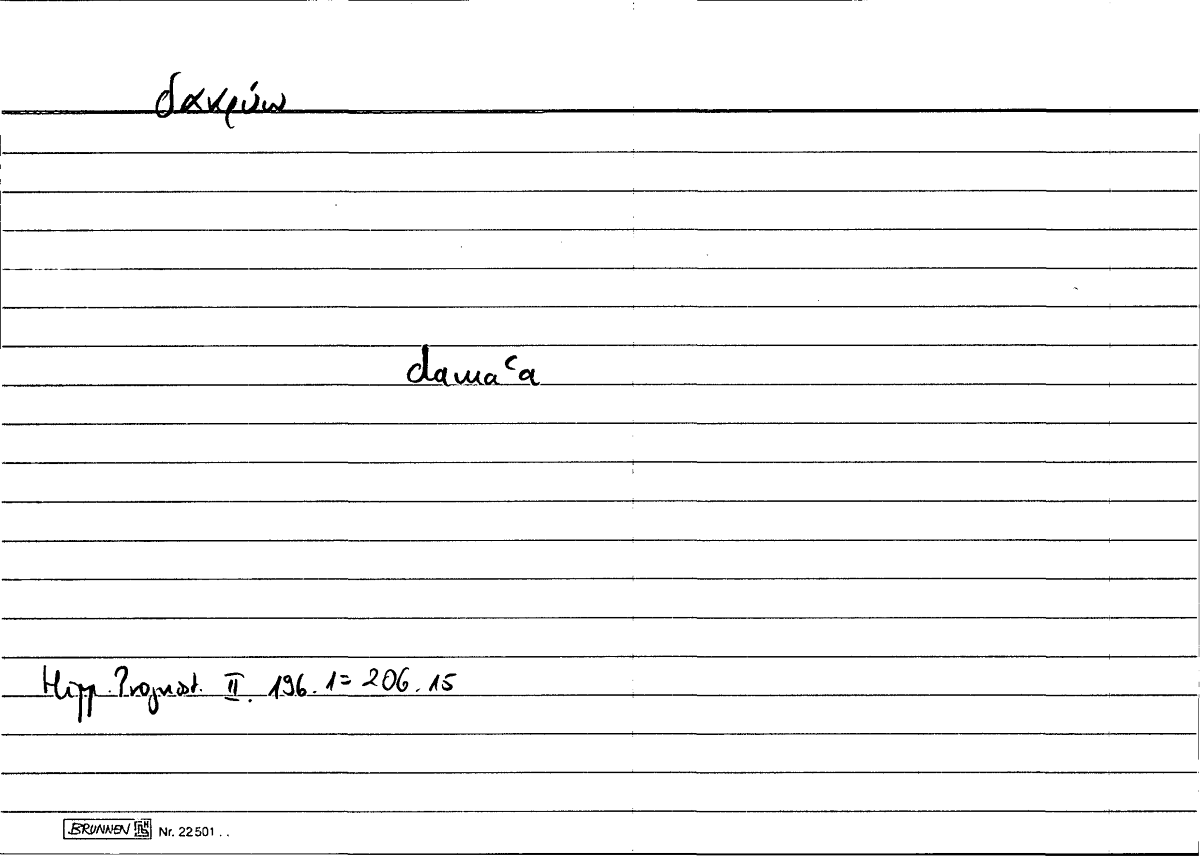 δακρύω
damaʿa
Hipp. Prognost. II. 196.1 = 206.15
BRUNNEN Nr. 22501 . .